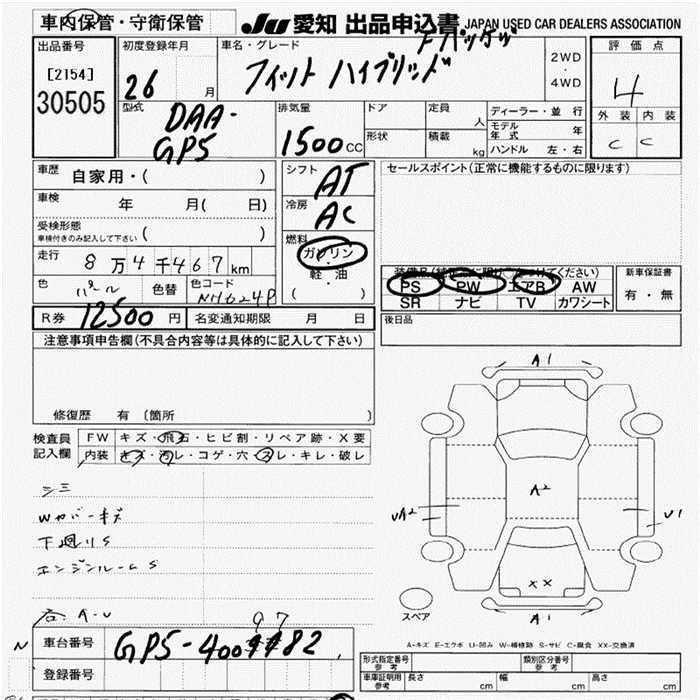 車内保管・守衛保管
JU 愛知 出品申込書 JAPAN USED CAR DEALERS ASSOCIATION
出品番号
[2154]
30505
初度登録年月
26 月
車名・グレード
Fパッケージ
フィット ハイブリッド
2WD
・
4WD
評価点
4
外装 内装
C C
型式
DAA-
GP5
排気量
1500 CC
ドア
定員
人
形状
積載
kg
ディーラー・並行
モデル年式 年
ハンドル 左・右
車歴
自家用・( )
車検
年 月( 日)
受検形態
車検付きのみ記入して下さい ( )
走行
8万4千467km
色
パール
色替
色コード
NH624P
シフト
AT
冷房
AC
燃料
ガソリン
・
軽油
( )
セールスポイント(正常に機能するものに限ります)
PS PW エアB AW
SR ナビ TV カワシート
新車保証書
有・無
R券 12500 円
名変通知期限 月 日
後日品
注意事項申告欄(不具合内容等は具体的に記入して下さい)
修復歴 有 (箇所 )
検査員
記入欄
FW キズ・飛石・ヒビ割・リペア跡・X要
内装 キズ・汚レ・コゲ・穴・スレ・キレ・破レ
シミ
Wカバーキズ
下廻りS
エンジンルームS
各A-U
A1
A2
UA2
U1
XX
A1
スペア
A-キズ E-エクボ U-凹み W-補修跡 S-サビ C-腐食 XX-交換済
N
車台番号
97
GP5-4004482
登録番号
形式指定番号
参考
類別区分番号
参考
車庫証明用
参考
長さ cm 幅 cm 高さ cm